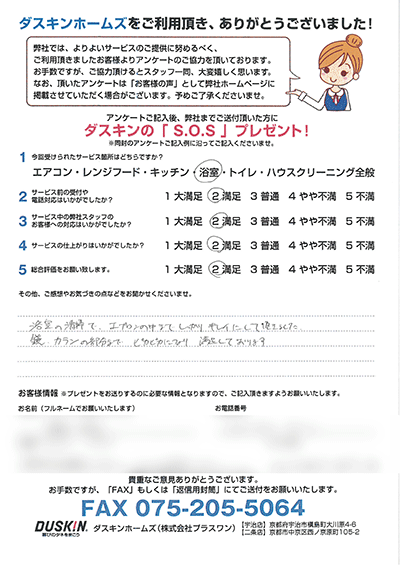 ダスキンホームズをご利用頂き、ありがとうございました!
弊社では、よりよいサービスのご提供に努めるべく、
ご利用頂きましたお客様よりアンケートのご協力を頂いております。
お手数ですが、ご協力頂けるとスタッフ一同、大変嬉しく思います。
なお、頂いたアンケートは「お客様の声」として弊社ホームページに
掲載させていただく場合がございます。予めご了承くださいませ。
アンケートご記入後、弊社までご送付頂いた方に
ダスキンの「S.O.S」プレゼント!
※同封のアンケートご記入例に沿ってご記入くださいませ。
1 今回受けられたサービス箇所はどちらですか?
エアコン・レンジフード・キッチン・浴室・トイレ・ハウスクリーニング全般
2 サービス前の受付や
電話対応はいかがでしたか? 1 大満足 2 満足 3 普通 4 やや不満 5 不満
3 サービス中の弊社スタッフの
お客様への対応はいかがでしたか? 1 大満足 2 満足 3 普通 4 やや不満 5 不満
4 サービスの仕上がりはいかがでしたか? 1 大満足 2 満足 3 普通 4 やや不満 5 不満
5 総合評価をお願い致します。 1 大満足 2 満足 3 普通 4 やや不満 5 不満
その他、ご感想やお気づきの点などをお聞かせくださいませ。
浴室の清掃で、エプロンの中までしっかりキレイにして頂きました
鏡、カランの部分まで ピカピカになり 満足しております
お客様情報 ※プレゼントをお送りするのに必要な情報となりますので、ご記入頂きますようお願いいたします。
お名前(フルネームでお願いいたします) お電話番号
貴重なご意見ありがとうございます。
お手数ですが、「FAX」もしくは「返信用封筒」にてご送付をお願いいたします。
FAX 075-205-5064
DUSKIN 喜びのタネをまこう ダスキンホームズ(株式会社プラスワン) 【宇治店】京都府宇治市槇島町大川原4-6
【二条店】京都市中京区西ノ京原町105-2